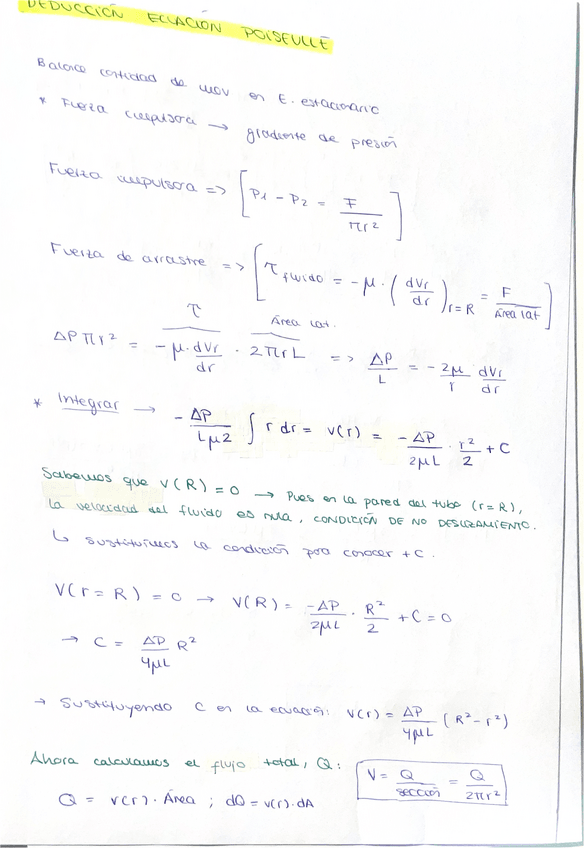 DEDUCCIÓN ECUACIÓN POISEUILLE
Balance cantidad de mov en E. estacionario
* Fuerza impulsora → gradiente de presión
Fuerza impulsora => [P1 - P2 = F / πr²]
Fuerza de arrastre => [τ fluido = -μ · (dVr / dr) r=R = F / Área lat]
τ Área lat.
ΔP π r² = -μ · dVr / dr · 2πrL => ΔP / L = - 2μ / r dVr / dr
* Integrar → - ΔP / Lμ2 ∫ r dr = v(r) = - ΔP / 2μL · r² / 2 + C
Sabemos que V(R) = 0 → Pues en la pared del tubo (r=R),
la velocidad del fluido es nula, CONDICIÓN DE NO DESLIZAMIENTO.
↳ Sustituimos la condición para conocer + C.
V(r = R) = 0 → V(R) = -ΔP / 2μL · R² / 2 + C = 0
→ C = ΔP / 4μL R²
→ Sustituyendo C en la ecuación: V(r) = ΔP / 4μL (R² - r²)
Ahora calculamos el flujo total, Q: V = Q / sección = Q / 2πr²
Q = v(r) · Área ; dQ = v(r) · dA